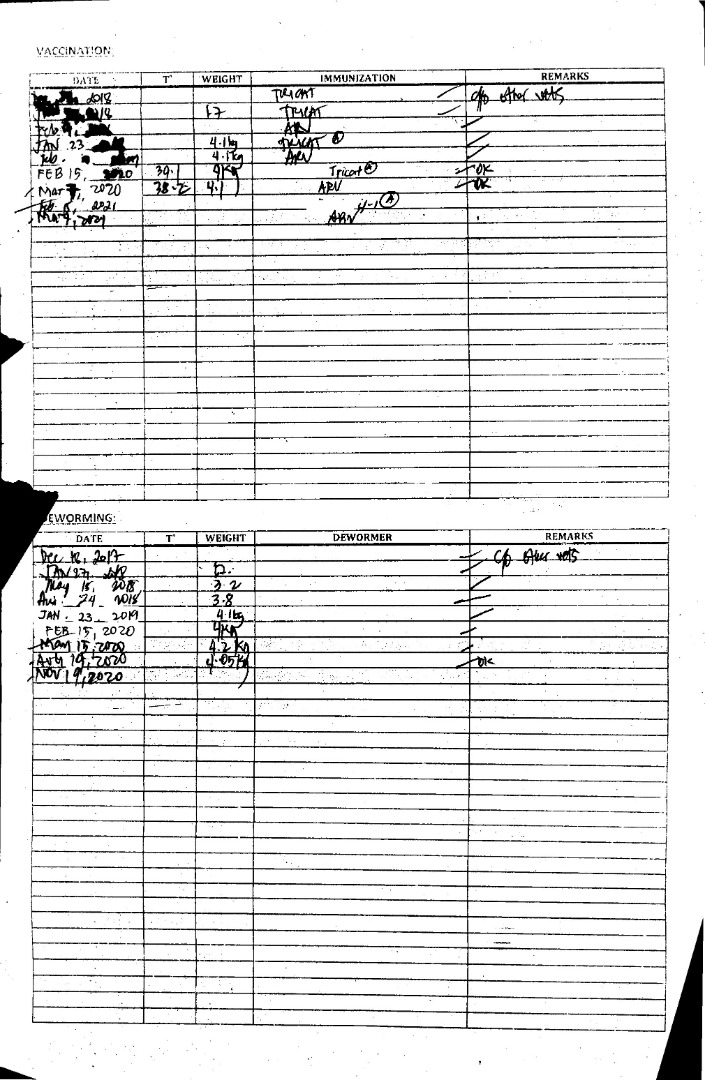 VACCINATION:
DATE T° WEIGHT IMMUNIZATION REMARKS
2018 TRICAT c/o other vets
TRICAT
Feb ARV
JAN 23 4.1kg TRICAT
4.1kg ARV
FEB 15, 2020 39.1 4kg Tricat OK
Mar 7, 2020 38.2 4.1 ARV OK
2021 4-1 A
Mar 9, 2021 ARV
DEWORMING:
DATE T° WEIGHT DEWORMER REMARKS
Dec 18, 2017 c/o other vets
JAN 27, 2018
May 15, 2018 3.2
24 2018 3.8
JAN. 23 2019 4.1kg
FEB 15, 2020 4kg
May 15, 2020 4.2 kg
Aug 19, 2020 4.05kg OK
NOV 19, 2020